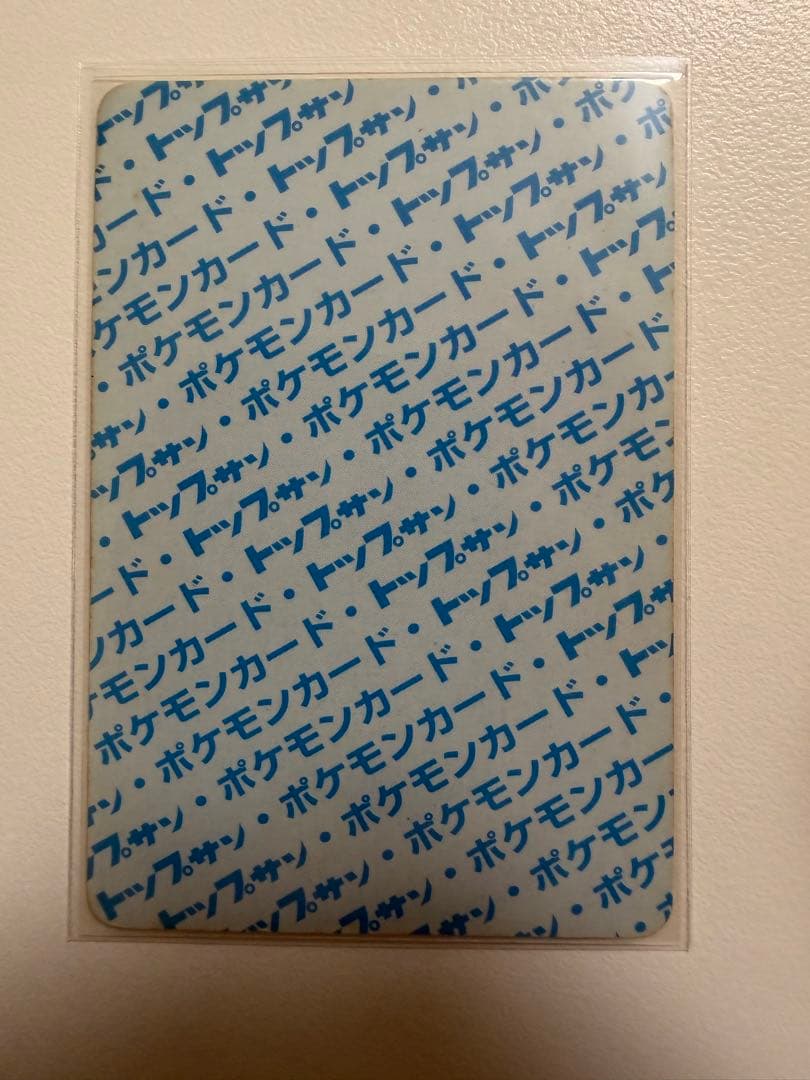 トップサ
ド・トップサン
ード・トップサン・
ンカード・トップサン・ポ
ケモンカード・トップサン・ポケ
・ポケモンカード・トップサン・ポ
サン・ポケモンカード・トップサン
ップサン・ポケモンカード・トップサ
・トップサン・ポケモンカード・トップ
ード・トップサン・ポケモンカード・ト
ンカード・トップサン・ポケモンカード
ケモンカード・トップサン・ポケモンカー
ポケモンカード・トップサン・ポケモン
・ポケモンカード・トップサン・ポケ
サン・ポケモンカード・トップサン・
ップサン・ポケモンカード・トップサ
トップサン・ポケモンカード・トッ
トップサン・ポケモンカード・
トップサン・ポケモンカー
ップサン・ポケモン
サン・ポケ